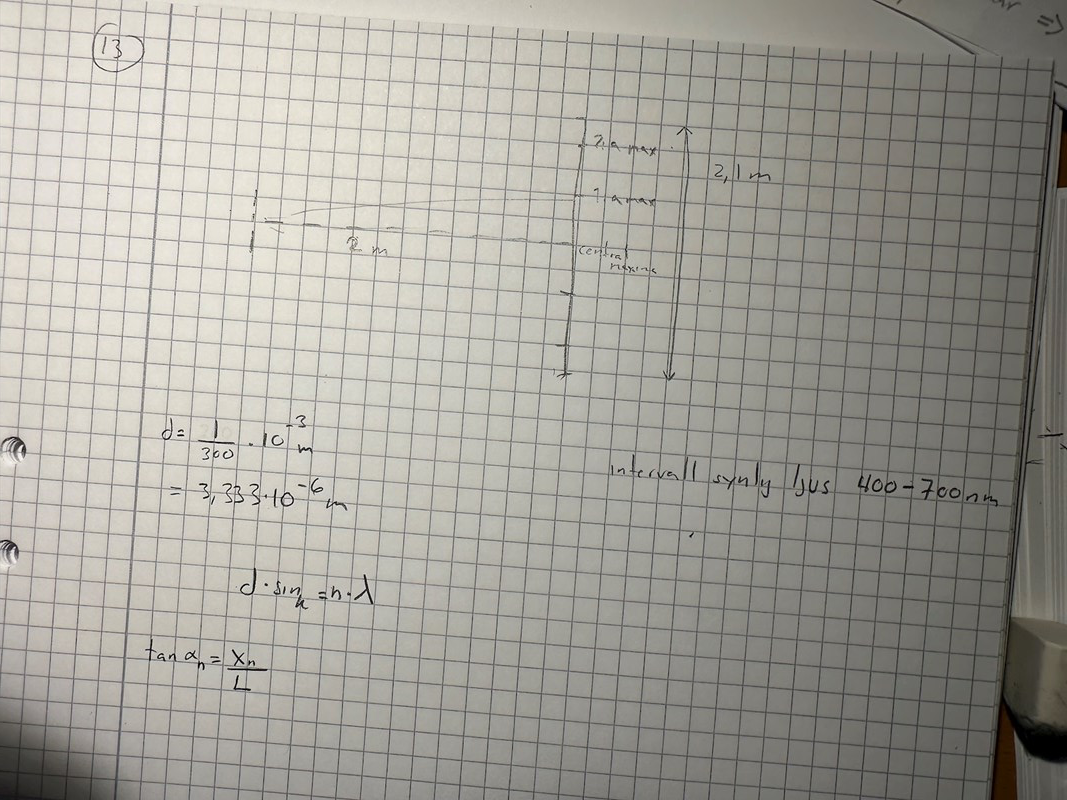 13
2:a max
2,1 m
1:a max
2 m
central
maxima
d = 1/300 · 10^-3 m
= 3,333·10^-6 m
intervall synlig ljus 400-700nm
d·sin α = n·λ
tan α_n = x_n/L